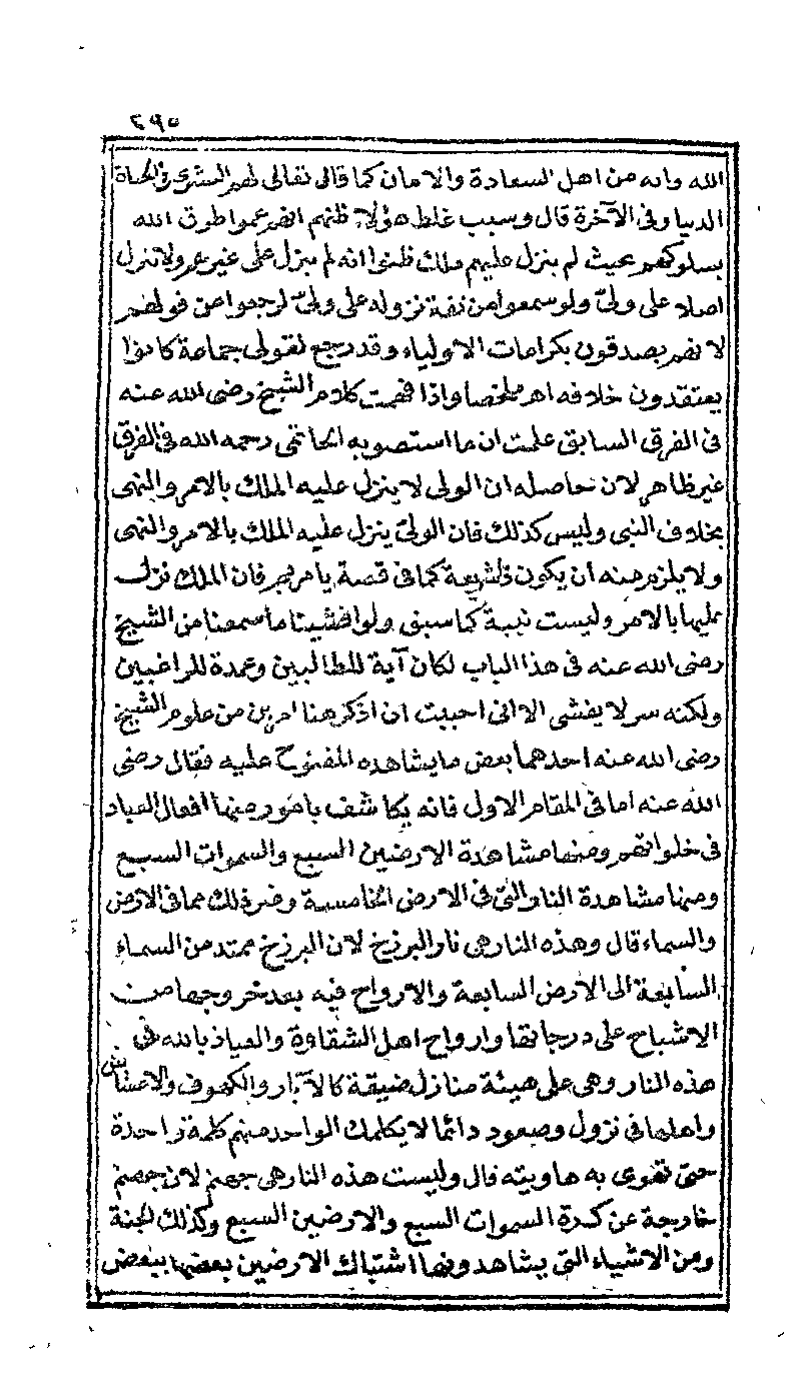 ٢٩٥
الله وانه من اهل السعادة والامان كما قال تعالى لهم البشرى في الحياة
الدنيا وفى الآخرة قال وسبب غلط هؤلاء ظنهم انهم عموا طرق الله
بسلوكهم بحيث لم ينزل عليهم ملك ظنوا انه لم ينزل على غيرهم ولا تنزل
اصلا على ولىّ ولو سمعوا من ثقة نزوله على ولىّ لرجعوا عن قولهم
لانهم يصدقون بكرامات الاولياء وقد رجع لقولى جماعة كانوا
يعتقدون خلافه اهـ ملخصا واذا فهمت كلام الشيخ رضى الله عنه
فى الفرق السابق علمت ان ما استصوبه الحاتمى رحمه الله فى الفرق
غير ظاهر لان حاصله ان الولى لا ينزل عليه الملك بالامر والنهى
بخلاف النبى وليس كذلك فان الولىّ ينزل عليه الملك بالامر والنهى
ولا يلزم منه ان يكون ذا شريعة كما فى قصة يا مريم فان الملك نزل
عليها بالامر وليست نبية كما سبق ولو افشينا ما سمعنا من الشيخ
رضى الله عنه فى هذا الباب لكان آية للطالبين وعمدة للراغبين
ولكنه سر لا يفشى الا انى احببت ان اذكر هنا امرين من علوم الشيخ
رضى الله عنه احدهما بعض ما يشاهده المفتوح عليه فقال رضى
الله عنه اما فى المقام الاول فانه يكاشف بامور منها افعال العباد
فى خلواتهم ومنها مشاهدة الارضين السبع والسموات السبع
ومنها مشاهدة النار التى فى الارض الخامسة وغير ذلك مما فى الارض
والسماء قال وهذه النار هى نار البرزخ لان البرزخ ممتد من السماء
السابعة الى الارض السابعة والارواح فيه بعد خروجها من
الاشباح على درجاتها وارواح اهل الشقاوة والعياذ بالله فى
هذه النار وهى على هيئة منازل ضيقة كالآبار والكهوف والاعشاش
واهلها فى نزول وصعود دائما لا يكلمك الواحد منهم كلمة واحدة
حتى تهوى به هاويته قال وليست هذه النار هى جهنم لان جهنم
خارجة عن كرة السموات السبع والارضين السبع وكذلك الجنة
ومن الاشياء التى يشاهدونها اشتباك الارضين بعضها ببعض